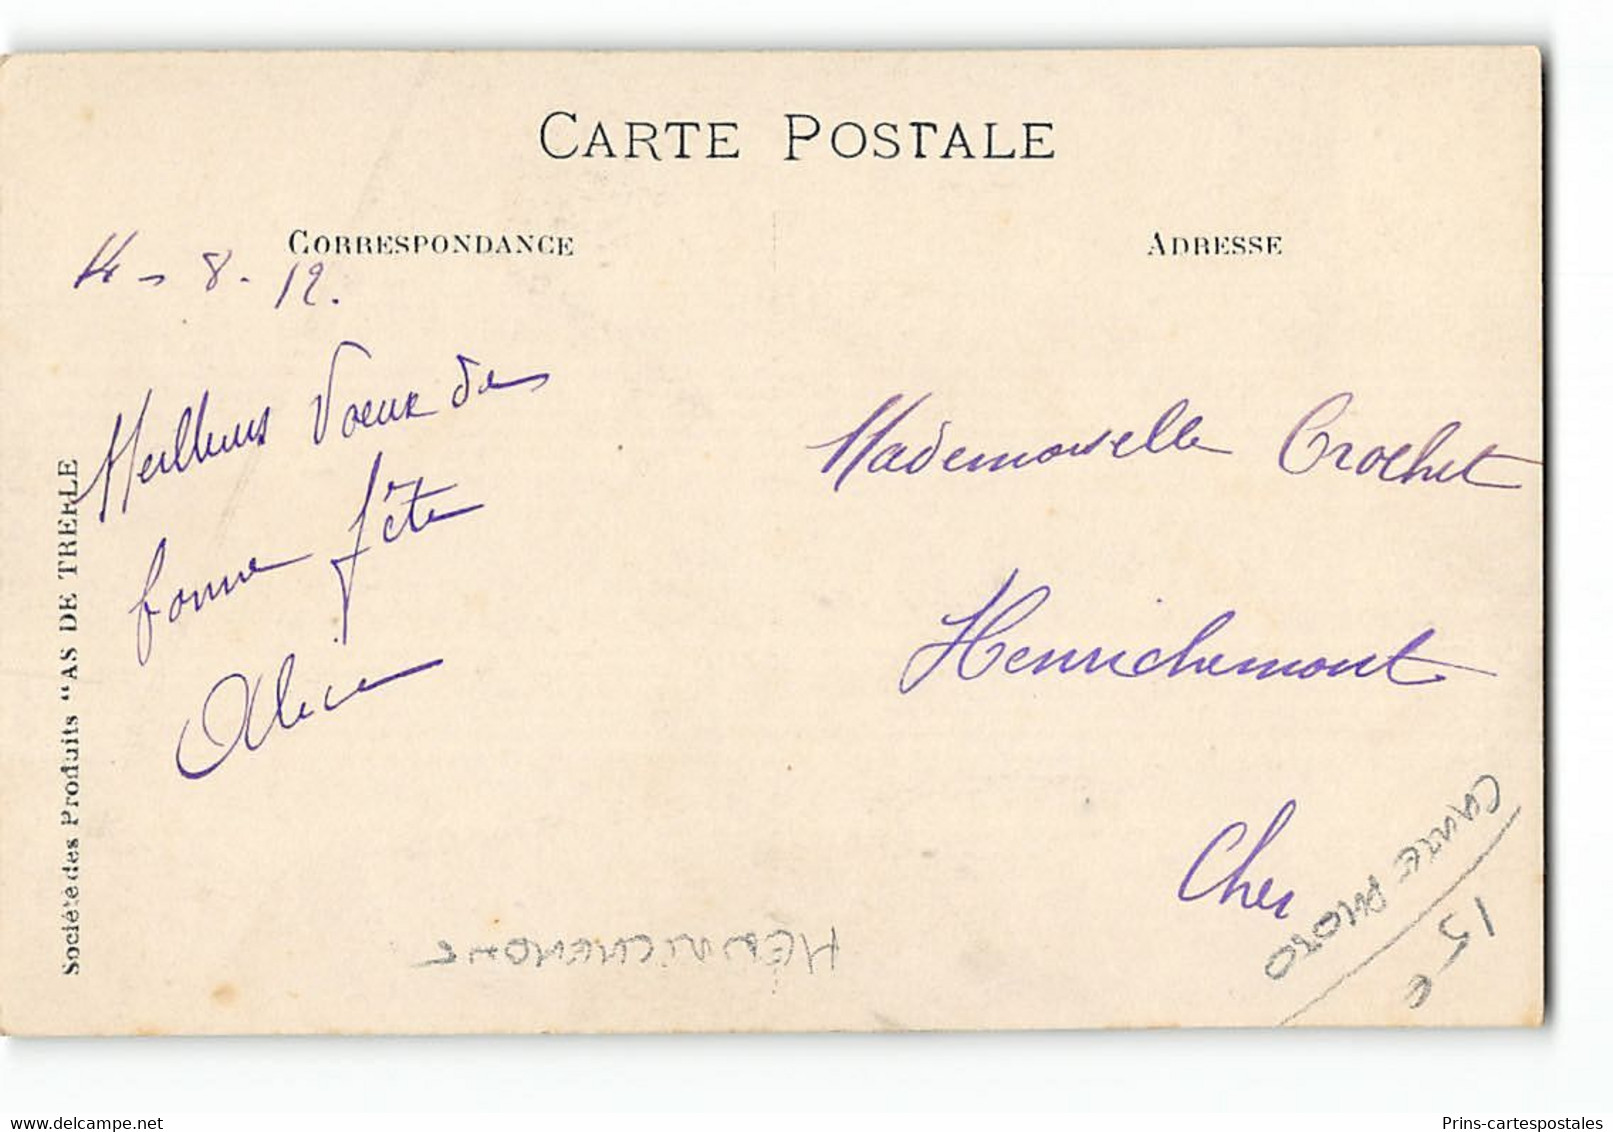 CARTE POSTALE
CORRESPONDANCE
ADRESSE
14 - 8 - 12.
Meilleurs Voeux de
bonne fête
Alice
Mademoiselle Crochet
Henrichemont
Cher
Société des Produits "AS DE TREFLE
CARTE PHOTO
15 €
HENRICHEMONT
delcampe.net
Prins-cartespostales